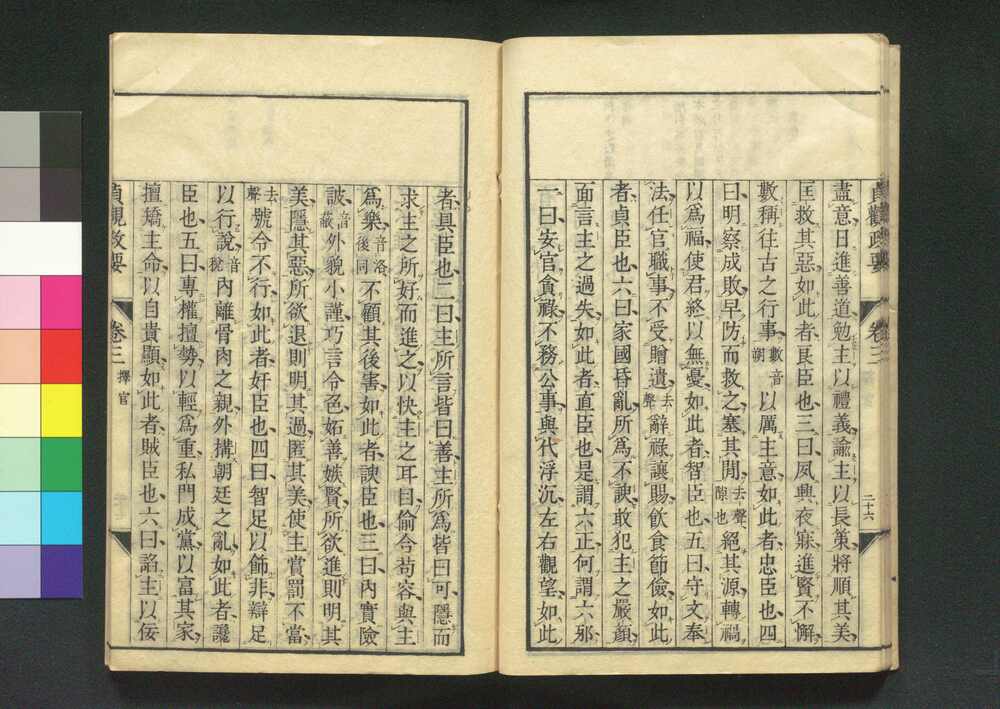 貞觀政要
卷三
二十六
盡意日進善道勉主以禮義諭主以長策將順其美
匡救其惡如此者良臣也三曰夙興夜寐進賢不懈
數稱往古之行事數音朔以厲主意如此者忠臣也四
曰明察成敗早防而救之塞其閒去聲隙也絕其源轉禍
以爲福使君終以無憂如此者智臣也五曰守文奉
法任官職事不受贈遺去聲辭祿讓賜飮食節儉如此
者貞臣也六曰家國昏亂所爲不諛敢犯主之嚴顏
面言主之過失如此者直臣也是謂六正何謂六邪
一曰安官貪祿不務公事與代浮沉左右觀望如此
者具臣也二曰主所言皆曰善主所爲皆曰可隱而
求主之所好而進之以快主之耳目偷合苟容與主
爲樂音洛後同不顧其後害如此者諛臣也三曰內實險
詖音蔽外貌小謹巧言令色妬善嫉賢所欲進則明其
美隱其惡所欲退則明其過匿其美使主賞罰不當
去聲號令不行如此者奸臣也四曰智足以飾非辯足
以行說音稅內離骨肉之親外構朝廷之亂如此者讒
臣也五曰專權擅勢以輕爲重私門成黨以富其家
擅矯主命以自貴顯如此者賊臣也六曰諂主以佞
貞觀政要
卷三
擇官